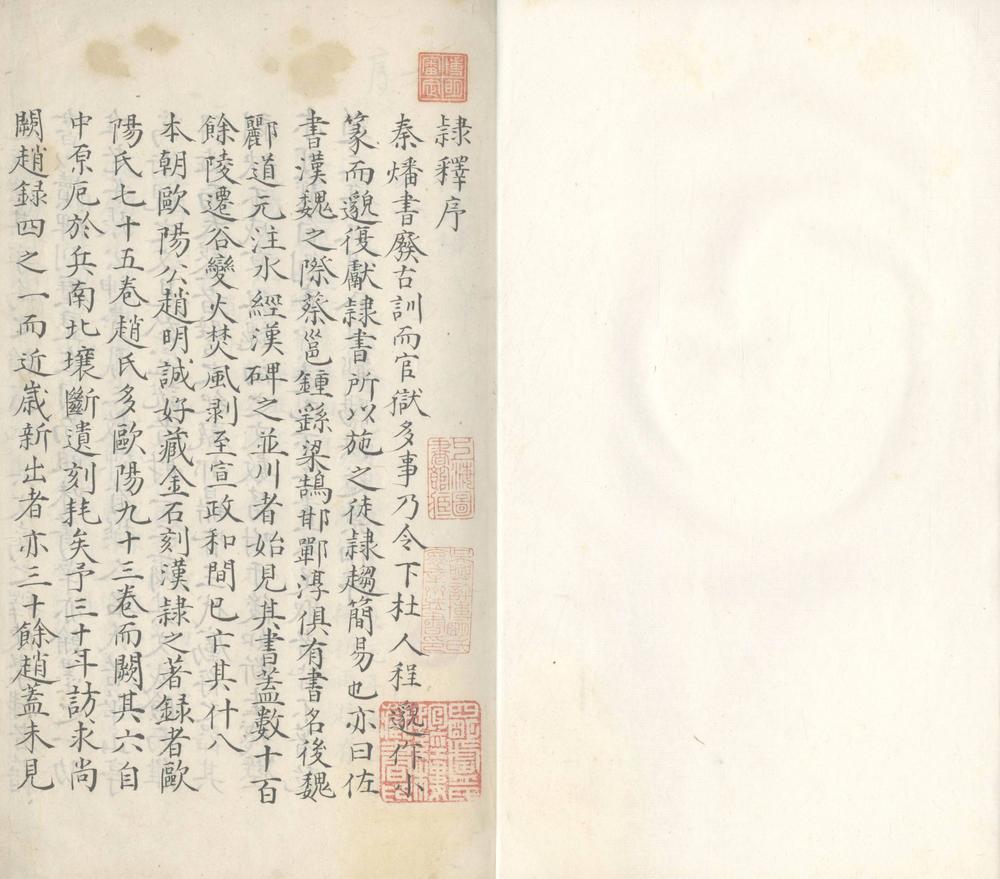 隷釋序
秦燔書廢古訓而官獄多事乃令下杜人程邈作小
篆而邈復獻隷書所以施之徒隷趨簡易也亦曰佐
書漢魏之際蔡邕鍾繇梁鵠邯鄲淳俱有書名後魏
酈道元注水經漢碑之並川者始見其書蓋數十百
餘陵遷谷變火焚風剥至宣政和間已亡其什八
本朝歐陽公趙明誠好藏金石刻漢隷之著録者歐
陽氏七十五卷趙氏多歐陽九十三卷而闕其六自
中原厄於兵南北壤斷遺刻耗矣予三十年訪求尚
闕趙録四之一而近歳新出者亦三十餘趙蓋未見